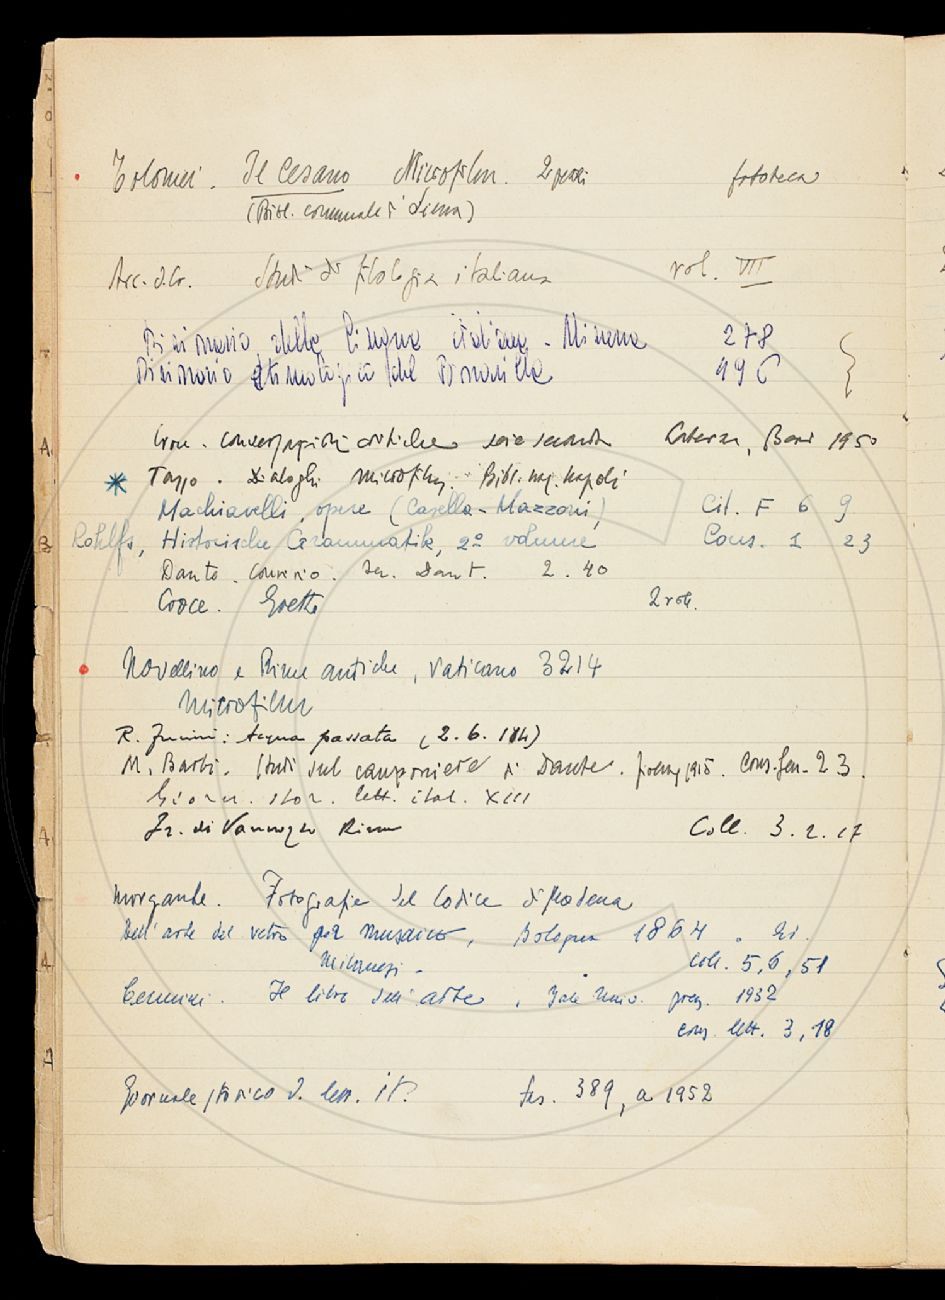 Tolomei. Il Cesano Microfilm. 2 pezzi fototeca
(Bibl. comunale di Siena)
Acc. d. Cr. Studi di filologia italiana vol. VII
Dizionario della lingua italiana - Minerva 278
Dizionario Etimologico del Bonavilla 496
Croce. Conversazioni critiche serie seconda Laterza, Bari 1950
Tasso. Dialoghi microfilm. Bibl. naz. Napoli
Machiavelli, opere (Casella-Mazzoni) Cit. F 6 9
Rohlfs, Historische Grammatik, 2º volume Cons. I 23
Dante. Convivio. Dant. 2. 40
Croce. Goethe 2 voll.
Novellino e Rime antiche, Vaticano 3214
Microfilm
R. Fucini: Acqua passata (2. 6. 184)
M. Barbi. Studi sul canzoniere di Dante. Firenze, 1915. Cons. Gen. 23.
Giorn. stor. lett. ital. XIII
Fr. di Vannozzo Rime Coll. 3. 2. 17
Morgante. Fotografie del Codice di Modena
Dell'arte del vetro per musaico, Bologna 1864. Ed.
Milanesi - coll. 5, 6, 51
Cennini. Il libro dell'arte, Yale Univ. press. 1932
cons. lett. 3, 18
Giornale storico d. lett. it. fas. 389, a 1952